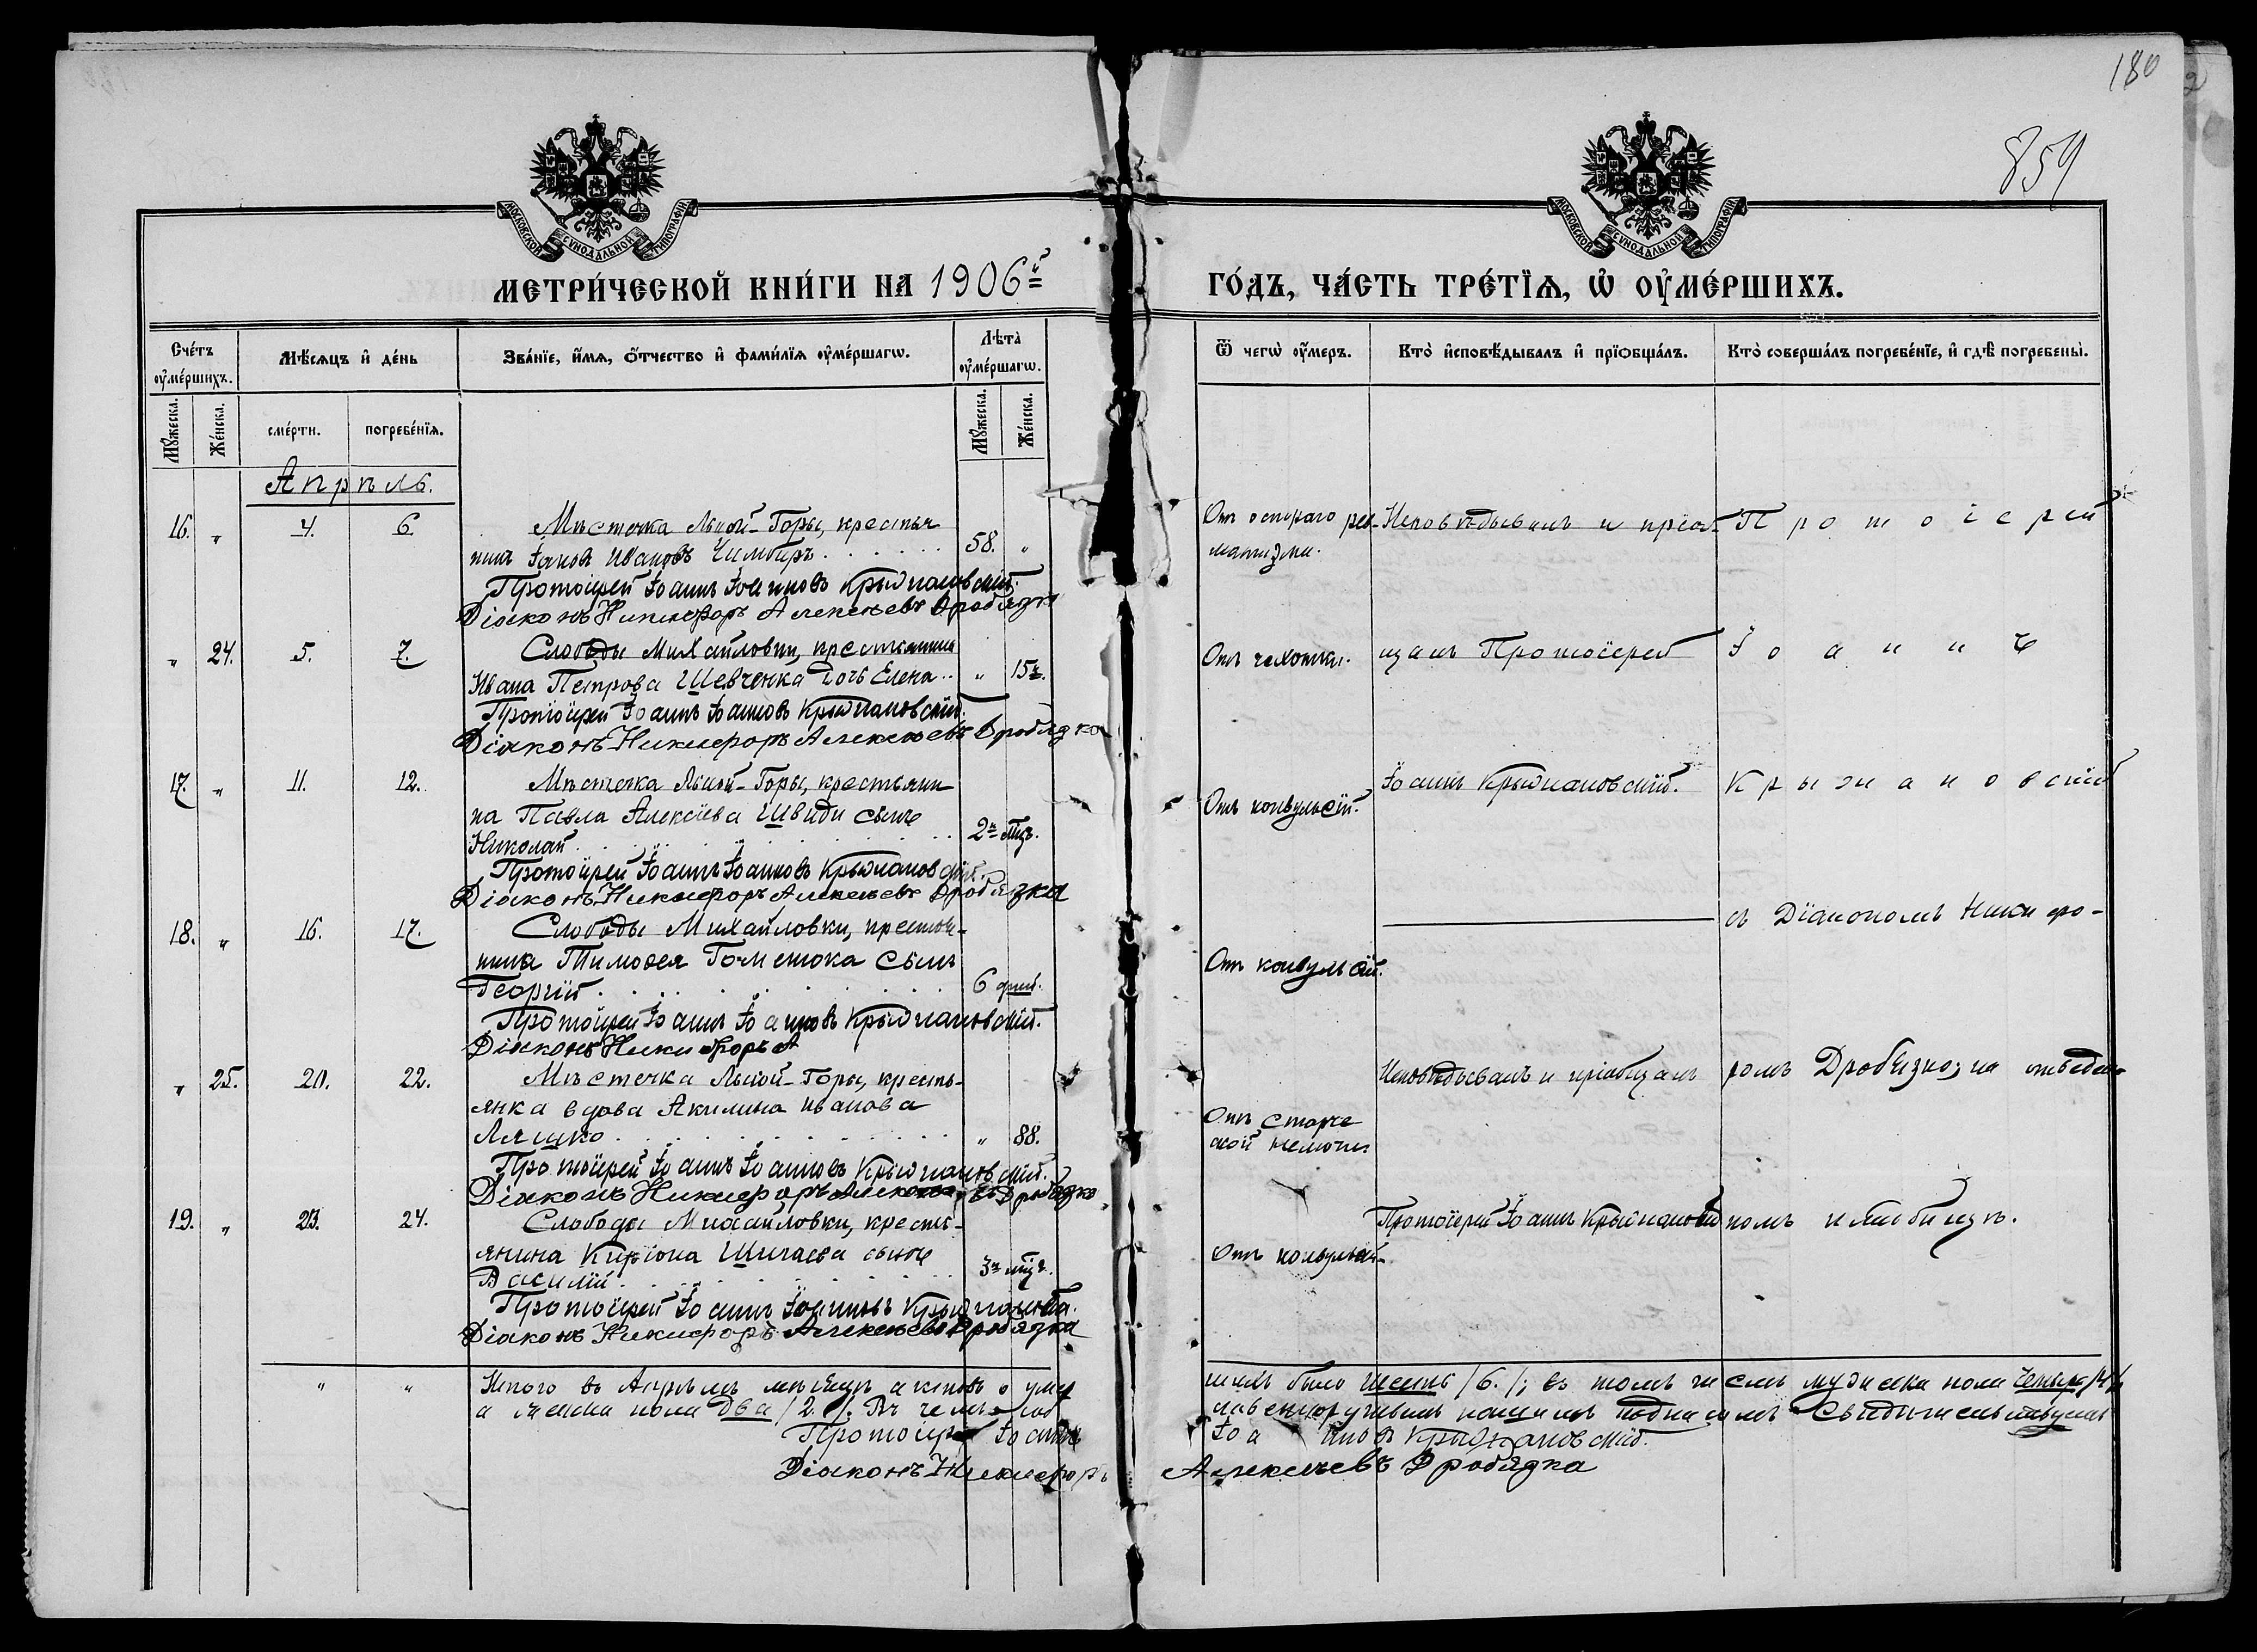 180
859
МОСКОВСКОЙ СѴНОДАЛЬНОЙ ТИПОГРАФІИ
МОСКОВСКОЙ СѴНОДАЛЬНОЙ ТИПОГРАФІИ
МЕТРИ́ЧЕСКОЙ КНИ́ГИ НА 1906й
ГО́ДЪ, ЧА́СТЬ ТРЕ́ТЇѦ, Ѡ҆ ОУ҆МЕ́РШИХЪ.
Сче́тъ оу҆ме́ршихъ.
Мѣ́сѧцъ и҆ де́нь
Зва́нїе, и҆́мѧ, ѻ҆́тчество и҆ фами́лїѧ оу҆ме́ршагѡ.
Лѣ́та оу҆ме́ршагѡ.
Ѿ чегѡ̀ оу҆́меръ.
Кто̀ и҆сповѣ́дывалъ и҆ прїѻбща́лъ.
Кто̀ соверша́лъ погребе́нїе, и҆ гдѣ̀ погребены̀.
Мꙋ́жеска.
Же́нска.
сме́рти.
погребе́нїѧ.
Мꙋ́жеска.
Же́нска.
Апрѣль.
16. " 4. 6. Мѣстечка Лысой-Горы, крестья
нинъ Іаковъ Ивановъ Чимбиръ 58. "
Протоіерей Іоаннъ Іоанновъ Крыжановскій.
Діаконъ Никифоръ Алексѣевъ Дробязка
Отъ остраго рев-
матизма.
Исповѣдывалъ и пріоб-
Протоіерей
" 24. 5. 7. Слободы Михайловки, крестьянина
Ивана Петрова Шевченка дочь Елена " 15
Протоіерей Іоаннъ Іоанновъ Крыжановскій.
Діаконъ Никифоръ Алексѣевъ Дробязка
Отъ чахотки.
щалъ Протоіерей
Іоаннъ
17. " 11. 12. Мѣстечка Лысой-Горы, крестьяни
на Павла Алексіева Швиди сынъ
Николай 2 мѣц.
Протоіерей Іоаннъ Іоанновъ Крыжановскій.
Діаконъ Никифоръ Алексѣевъ Дробязка
Отъ конвульсій.
Іоаннъ Крыжановскій.
Крыжановскій
18. " 16. 17. Слободы Михайловки, крестья-
нина Тимоѳея сынъ
Георгій 6 дней.
Протоіерей Іоаннъ Іоанновъ Крыжановскій.
Діаконъ Никифоръ А
Отъ конвульсій.
съ Діакономъ Никифо-
" 25. 20. 22. Мѣстечка Лысой-Горы, кресть-
янка вдова Акилина Иванова
Ляшко " 88.
Протоіерей Іоаннъ Іоанновъ Крыжановскій.
Діаконъ Никифоръ Алексѣевъ Дробязка
Отъ старче
ской немочи
Исповѣдывалъ и пріобщалъ
ромъ Дробязко; на отведен-
19. " 23. 24. Слободы Михайловки, кресть-
янина Киріона сынъ
Василій 3 мѣц.
Протоіерей Іоаннъ Іоанновъ
Діаконъ Никифоръ Алексѣевъ Дробязка
Отъ конвульсій
Протоіерей Іоаннъ Крыжановскій
номъ кладбищѣ.
" " Итого въ Апрѣлѣ мѣсяцѣ актовъ о умер
шихъ было шесть /6./; въ томъ числѣ мужеска пола четыре /4/
а женска пола два /2./. Въ чемъ соб
ственноручнымъ нашимъ подписомъ свидѣтельствуемъ
Протоіерей Іоаннъ Іоанновъ Крыжановскій.
Діаконъ Никифоръ Алексѣевъ Дробязка